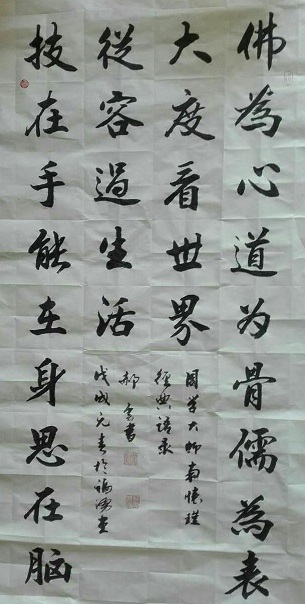 佛為心道为骨儒為表
大度看世界
從容過生活
技在手能在身思在脑
国学大师南懷瑾
經典語录
戊戌元春於
郝
書